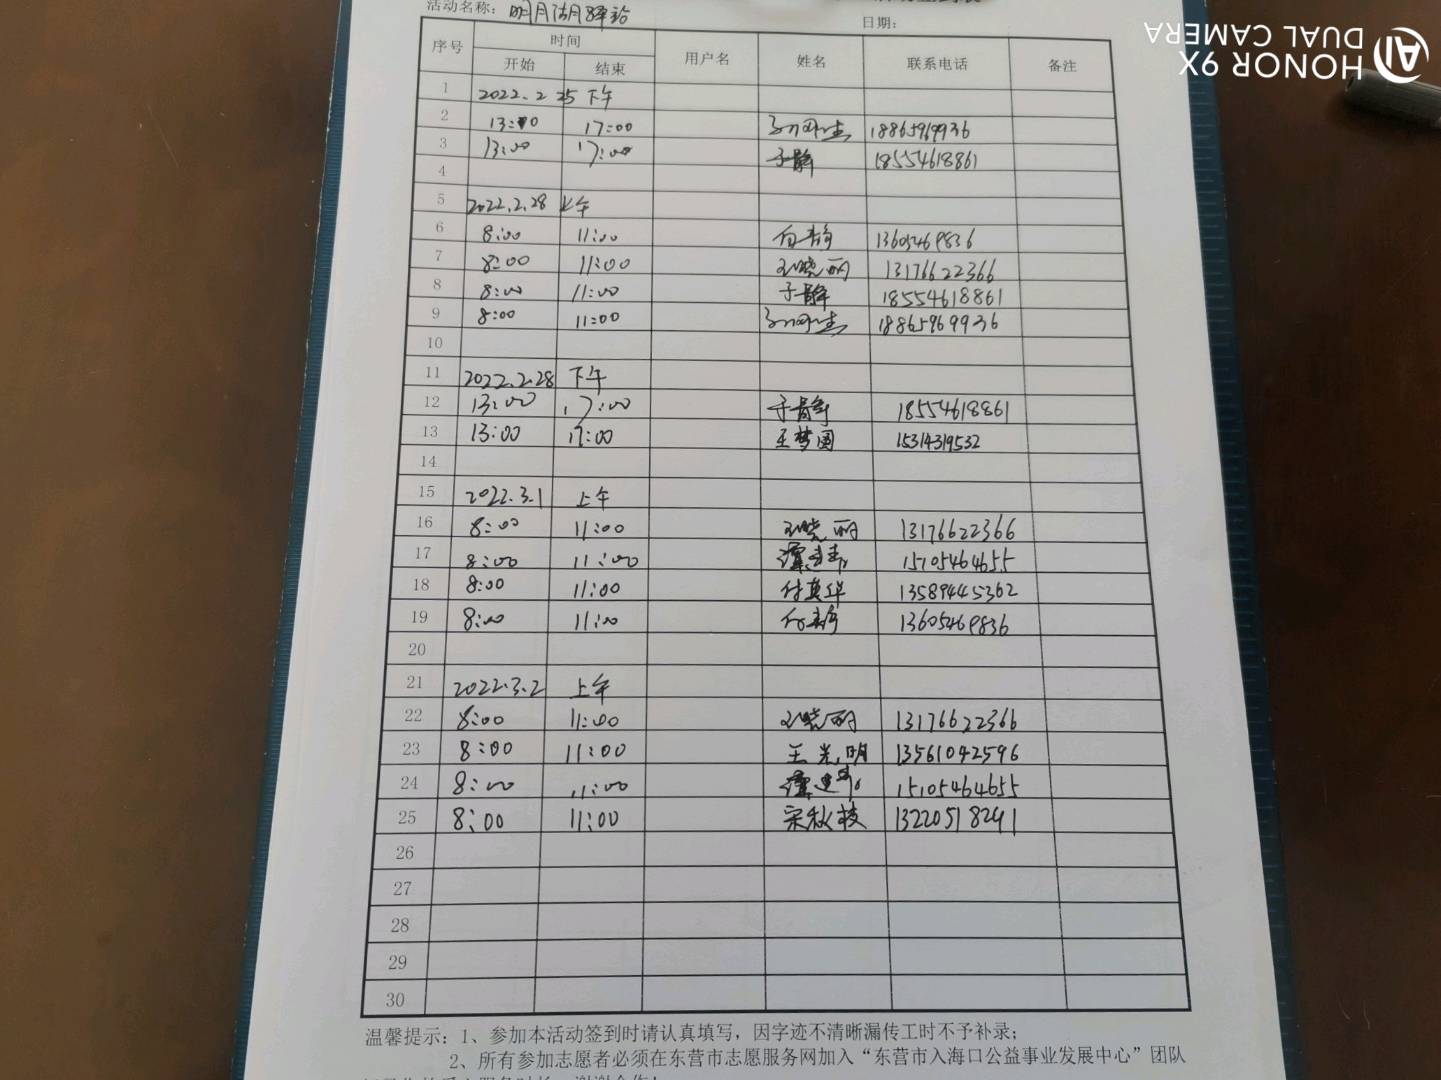 活动名称: 明月湖驿站
日期:
序号 时间 用户名 姓名 联系电话 备注
开始 结束
1 2022.2 25 下午
2 13:00 17:00 18865969936
3 13:00 17:00 于静 18554618861
4
5 2022.2.28 上午
6 8:00 11:00 13605469836
7 8:00 11:00 晓丽 13176622366
8 8:00 11:00 于静 18554618861
9 8:00 11:00 18865969936
10
11 2022.2.28 下午
12 13:00 17:00 于静 18554618861
13 13:00 17:00 王梦圆 15314319532
14
15 2022.3.1 上午
16 8:00 11:00 晓丽 13176622366
17 8:00 11:00 15105464655
18 8:00 11:00 付英华 13589445362
19 8:00 11:00 13605469836
20
21 2022.3.2 上午
22 8:00 11:00 晓丽 13176622366
23 8:00 11:00 王光明 13561042596
24 8:00 11:00 15105464655
25 8:00 11:00 宋秋枝 13220518291
26
27
28
29
30
温馨提示: 1、参加本活动签到时请认真填写，因字迹不清晰漏传工时不予补录;
2、所有参加志愿者必须在东营市志愿服务网加入“东营市入海口公益事业发展中心”团队
HONOR 9X
DUAL CAMERA
AI